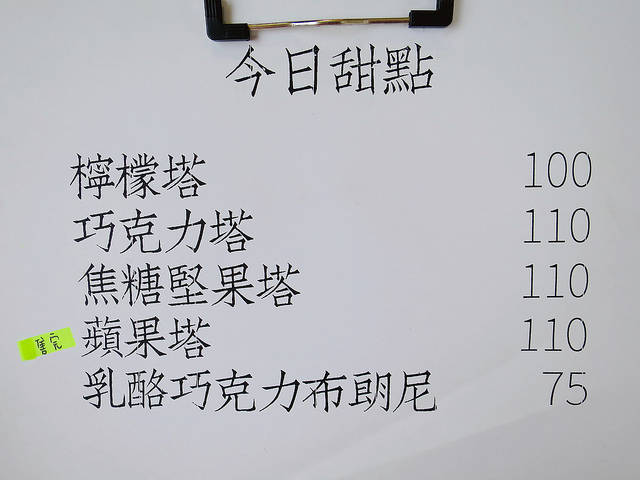 今日甜點
檸檬塔 100
巧克力塔 110
焦糖堅果塔 110
售完 蘋果塔 110
乳酪巧克力布朗尼 75